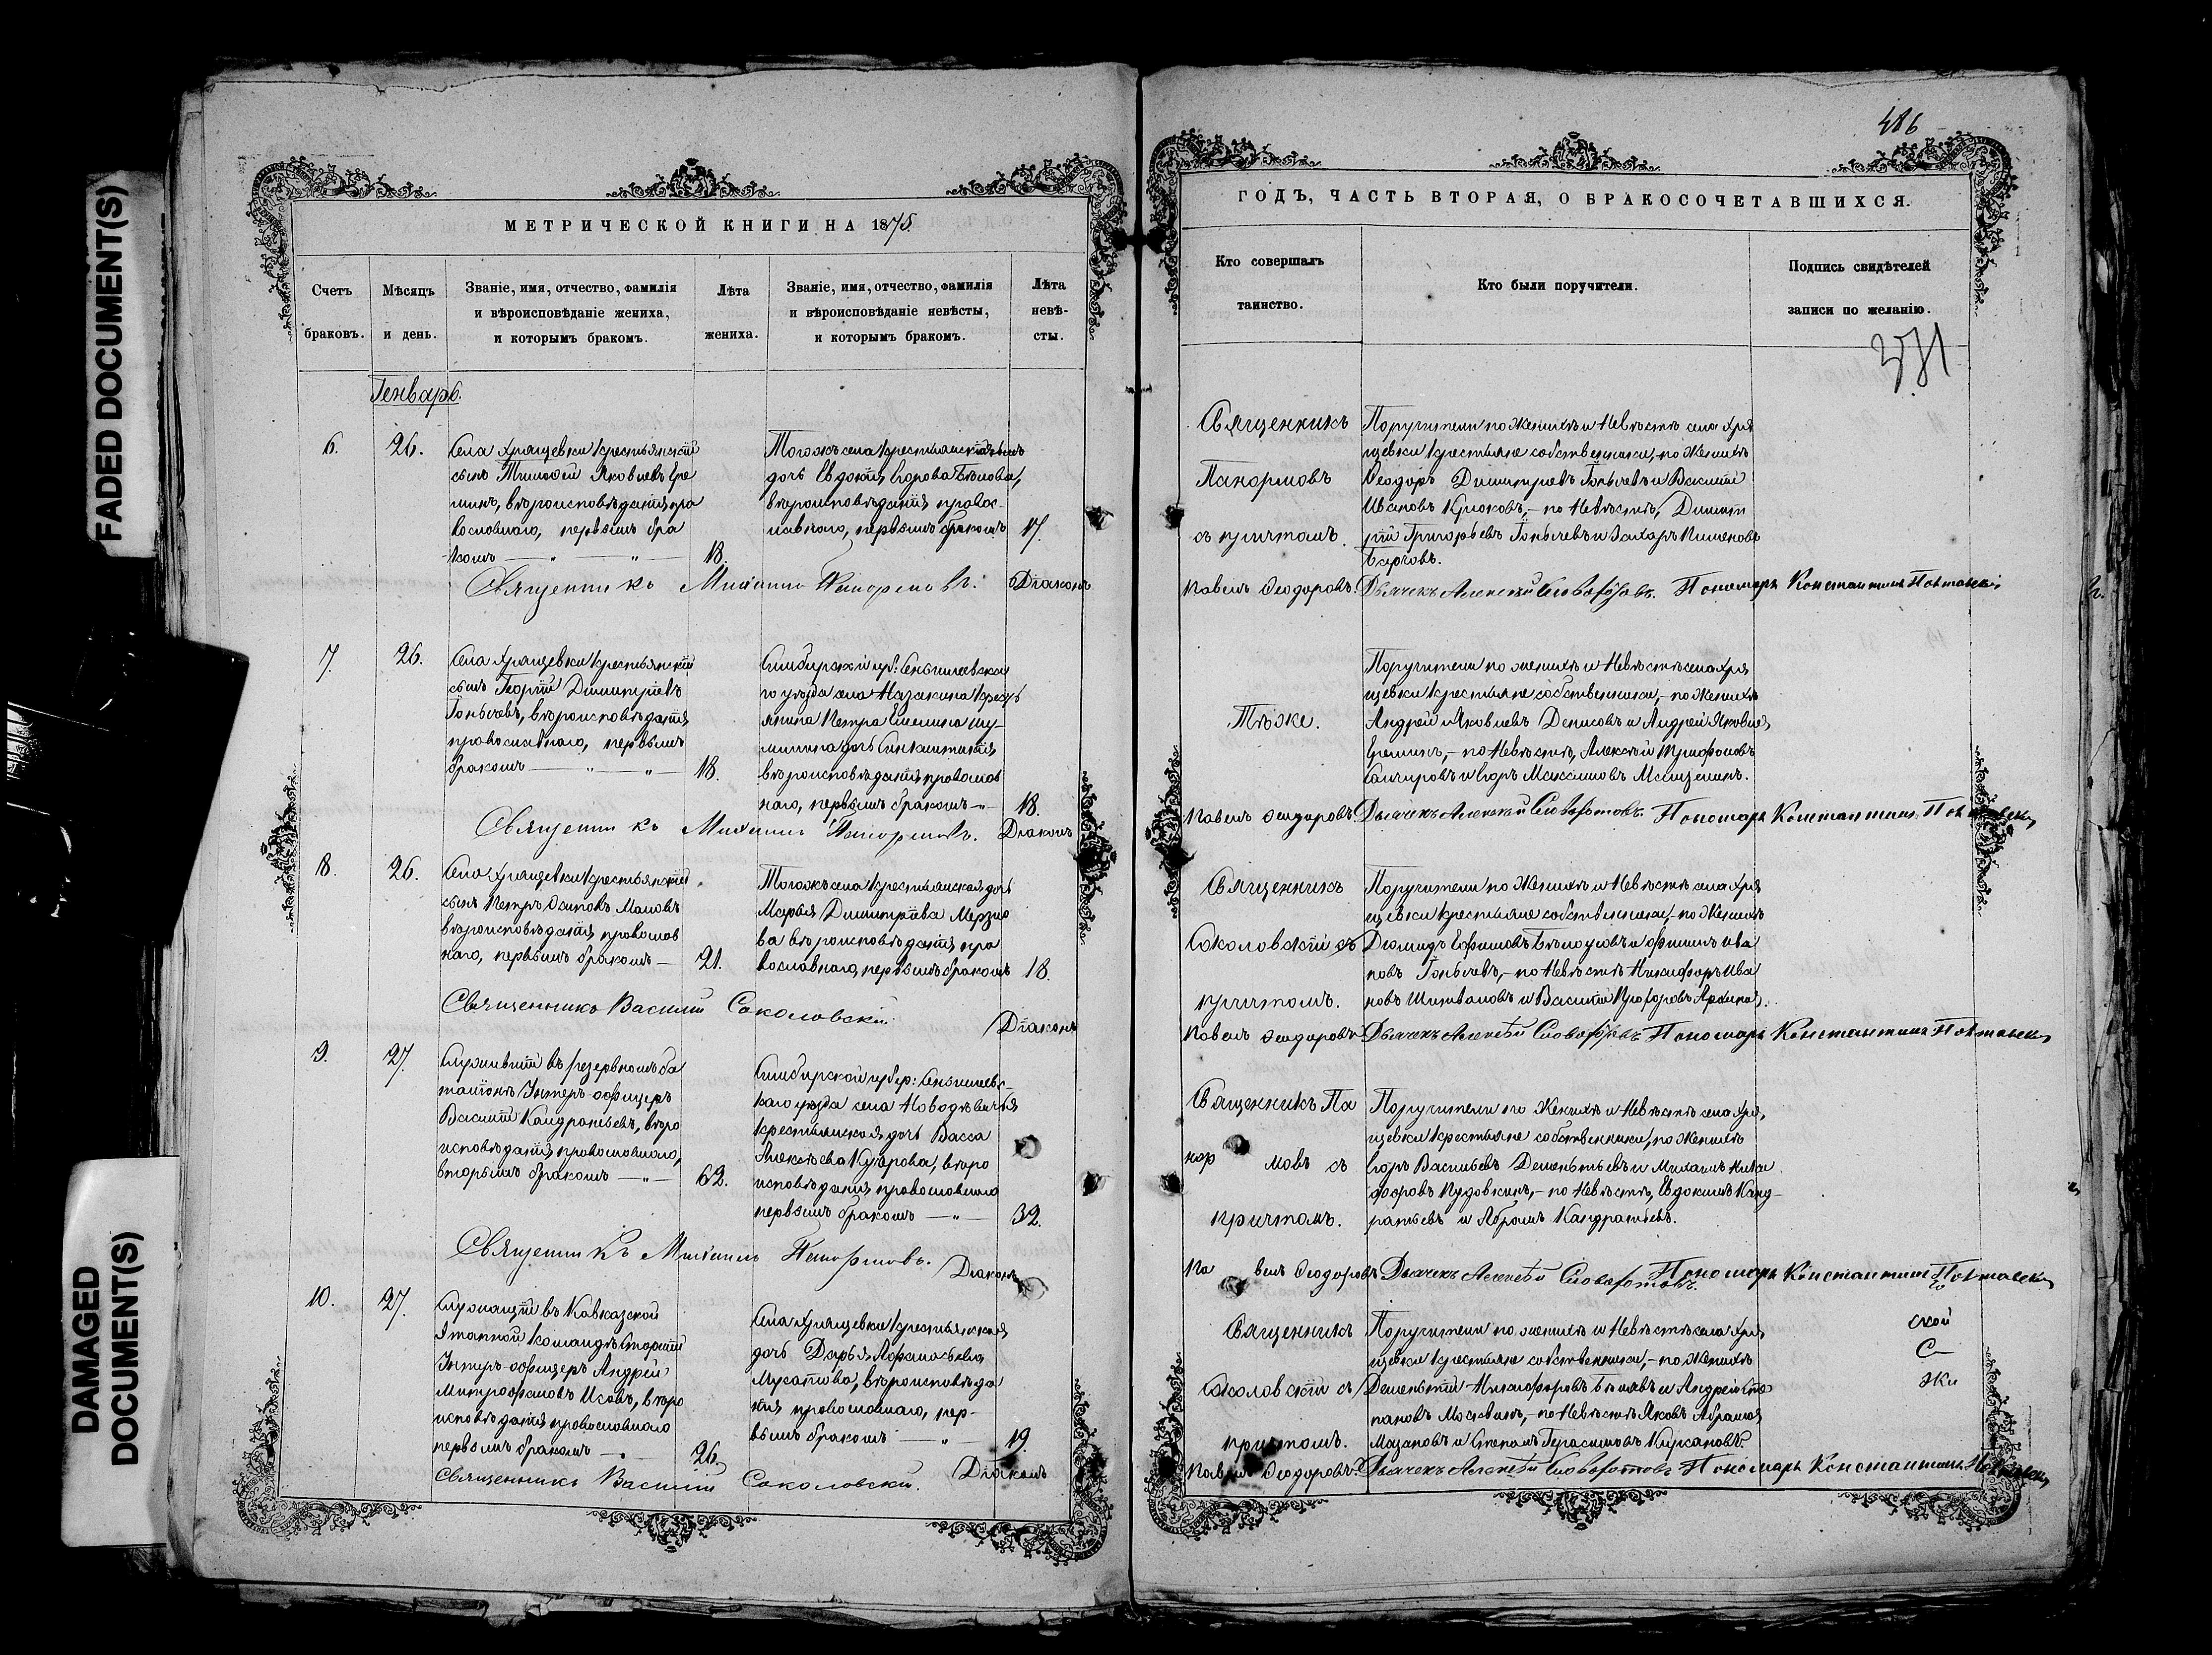 FADED DOCUMENT(S)
DAMAGED
DOCUMENT(S)
МЕТРИЧЕСКОЙ КНИГИ НА 1875
Счетъ
браковъ.
Мѣсяцъ
и день.
Званіе, имя, отчество, фамилія
и вѣроисповѣданіе жениха,
и которымъ бракомъ.
Лѣта
жениха.
Званіе, имя, отчество, фамилія
и вѣроисповѣданіе невѣсты,
и которымъ бракомъ.
Лѣта
невѣ-
сты.
Генварь.
6.
26.
Села Хрящевки крестьянскій
сынъ Тимофей Яковлевъ Ере
минъ, вѣроисповѣданія пра
вославнаго, первымъ бра
комъ — „ —
18.
Тогожъ села крестьянская
дочь Евдокія Егорова
вѣроисповѣданія правос-
лавнаго, первымъ бракомъ
17.
Священникъ Михаилъ Панормовъ. Діаконъ
7.
26.
Села Хрящевки крестьянскій
сынъ Георгій Димитріевъ
Гоньчевъ, вѣроисповѣданія
православнаго, первымъ
бракомъ — „ — „ —
18.
Симбирской губ: Сенгилеевска
го уѣзда села крест
янина Петра
дочь
вѣроисповѣданія православ
наго, первымъ бракомъ — „
18.
Священникъ Михаилъ Панормовъ. Діаконъ
8.
26.
Села Хрящевки крестьянскій
сынъ Петръ Осиповъ
вѣроисповѣданія православ
наго, первымъ бракомъ —
21.
Тогожъ села крестьянская дочь
Марья Димитріева
ва вѣроисповѣданія пра
вославнаго, первымъ бракомъ
18.
Священникъ Василій Соколовскій
Діаконъ
9.
27.
Служившій въ резервномъ ба
таліонѣ Унтеръ-офицеръ
Василій Кандратьевъ, вѣро
исповѣданія православнаго,
вторымъ бракомъ — „ —
62.
Симбирской губер: Сенгилеевс-
каго уѣзда села Новодѣвичья
крестьянская дочь Васса
Алексѣева вѣро
исповѣданія православнаго
первымъ бракомъ — „ —
32.
Священникъ Михаилъ Панормовъ. Діаконъ
10.
27.
Служащій въ Кавказской
Этапной командѣ Старшій
Унтеръ-офицеръ Андрей
Митрофановъ Исаевъ, вѣро
исповѣданія православнаго
первымъ бракомъ —
26.
Села Хрящевки крестьянская
дочь Дарья Афанасьева
вѣроисповѣда
нія православнаго, пер-
вымъ бракомъ — „ —
19.
Священникъ Василій Соколовскій. Діаконъ
486
ГОДЪ, ЧАСТЬ ВТОРАЯ, О БРАКОСОЧЕТАВШИХСЯ.
Кто совершалъ
таинство.
Кто были поручители.
Подпись свидѣтелей
записи по желанію.
Священникъ
Панормовъ
съ причтомъ.
Поручители по женихѣ и невѣстѣ села Хря
щевки крестьяне собственники,- по женихѣ
Ѳеодоръ Димитріевъ Гоньчевъ и Василій
Ивановъ Крюковъ,- по невѣстѣ, Димит
рій Григорьевъ Гоньчевъ и Захаръ
Павелъ Ѳеодоровъ. Дьячекъ Алексѣй Словоротовъ. Пономарь Константинъ
Тѣже.
Поручители по женихѣ и невѣстѣ села Хря
щевки крестьяне собственники,- по женихѣ
Андрей Яковлевъ Денисовъ и Андрей Яковлевъ
Ереминъ,- по невѣстѣ, Алексѣй Трифоновъ
и Егоръ Максимовъ
Павелъ Ѳеодоровъ Дьячекъ Алексѣй Словоротовъ. Пономарь Константинъ
Священникъ
Соколовскій съ
причтомъ.
Поручители по женихѣ и невѣстѣ села Хря
щевки крестьяне собственники,- по женихѣ
Діомидъ Ефимовъ Бѣлоусовъ и Ефимъ Ива
новъ Гоньчевъ,- по невѣстѣ Никифоръ Ива
новъ и Василій Прохоровъ
Павелъ Ѳеодоровъ Дьячекъ Алексѣй Словоротовъ Пономарь Константинъ
Священникъ Па
нор мовъ съ
причтомъ.
Поручители по женихѣ и невѣстѣ села Хря
щевки крестьяне собственники, по женихѣ
Егоръ Васильевъ Дементьевъ и Михаилъ Ники
форовъ Пудовкинъ,- по невѣстѣ, Евдокимъ Канд-
ратьевъ и Абрамъ Кандратьевъ.
Па велъ Ѳеодоровъ Дьячекъ Алексѣй Словоротовъ. Пономарь Константинъ
Священникъ
Соколовскій съ
причтомъ.
Поручители по женихѣ и невѣстѣ села Хря
щевки крестьяне собственники,- по женихѣ
Дементій Никифоровъ и Андрей Сте
пановъ по невѣстѣ Яковъ Абрамовъ
Мазановъ и Степанъ Герасимовъ Кирсановъ.
ской
Павелъ Ѳеодоровъ. Дьячекъ Алексѣй Словоротовъ Пономарь Константинъ